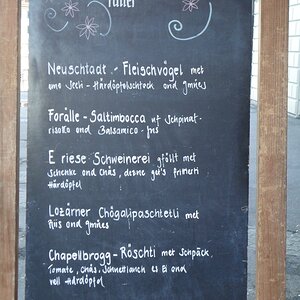 Neuschtadt - Fleischvögel met
emo Sech - Härdöpfelschtock and gmües
Forälle - Saltimbocca uf Schpinat-
risotto and Balsamico-
E riese Schweinerei gföllt met
Schenke and Chäs, dezue get's
Härdöpfel
Lozärner Chögalipaschtetli met
Riis and gmües
Chapellbrogg - Röschti met Schpäck,
Tomate, Chäs, Schnettlauch es Ei and
vell Härdöpfel